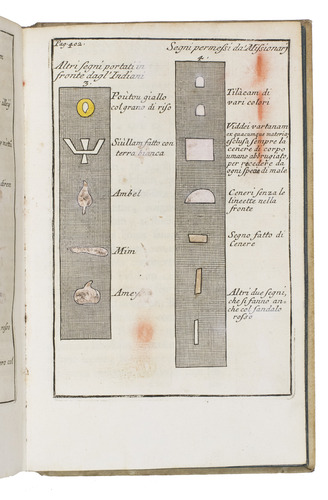 Pag. 402.
Altri segni portati in
fronte dagl'Indiani
3.
Poütou giallo
col grano di riso
Siüllam fatto con
terra bianca
Ambel
Mim
Amey
Segni permessi da Missionarj
4.
Tilàcam di
vari colori
Viddei vartanam
et quacunque matria
esclusa sempre la
cenere di corpo
umano abbrugiato,
per recedere da
ogni specie di male.
Ceneri senza le
lineette nella
fronte
Segno fatto di
Cenere
Altri due segni,
che si fanno an-
che col sandalo
rosso